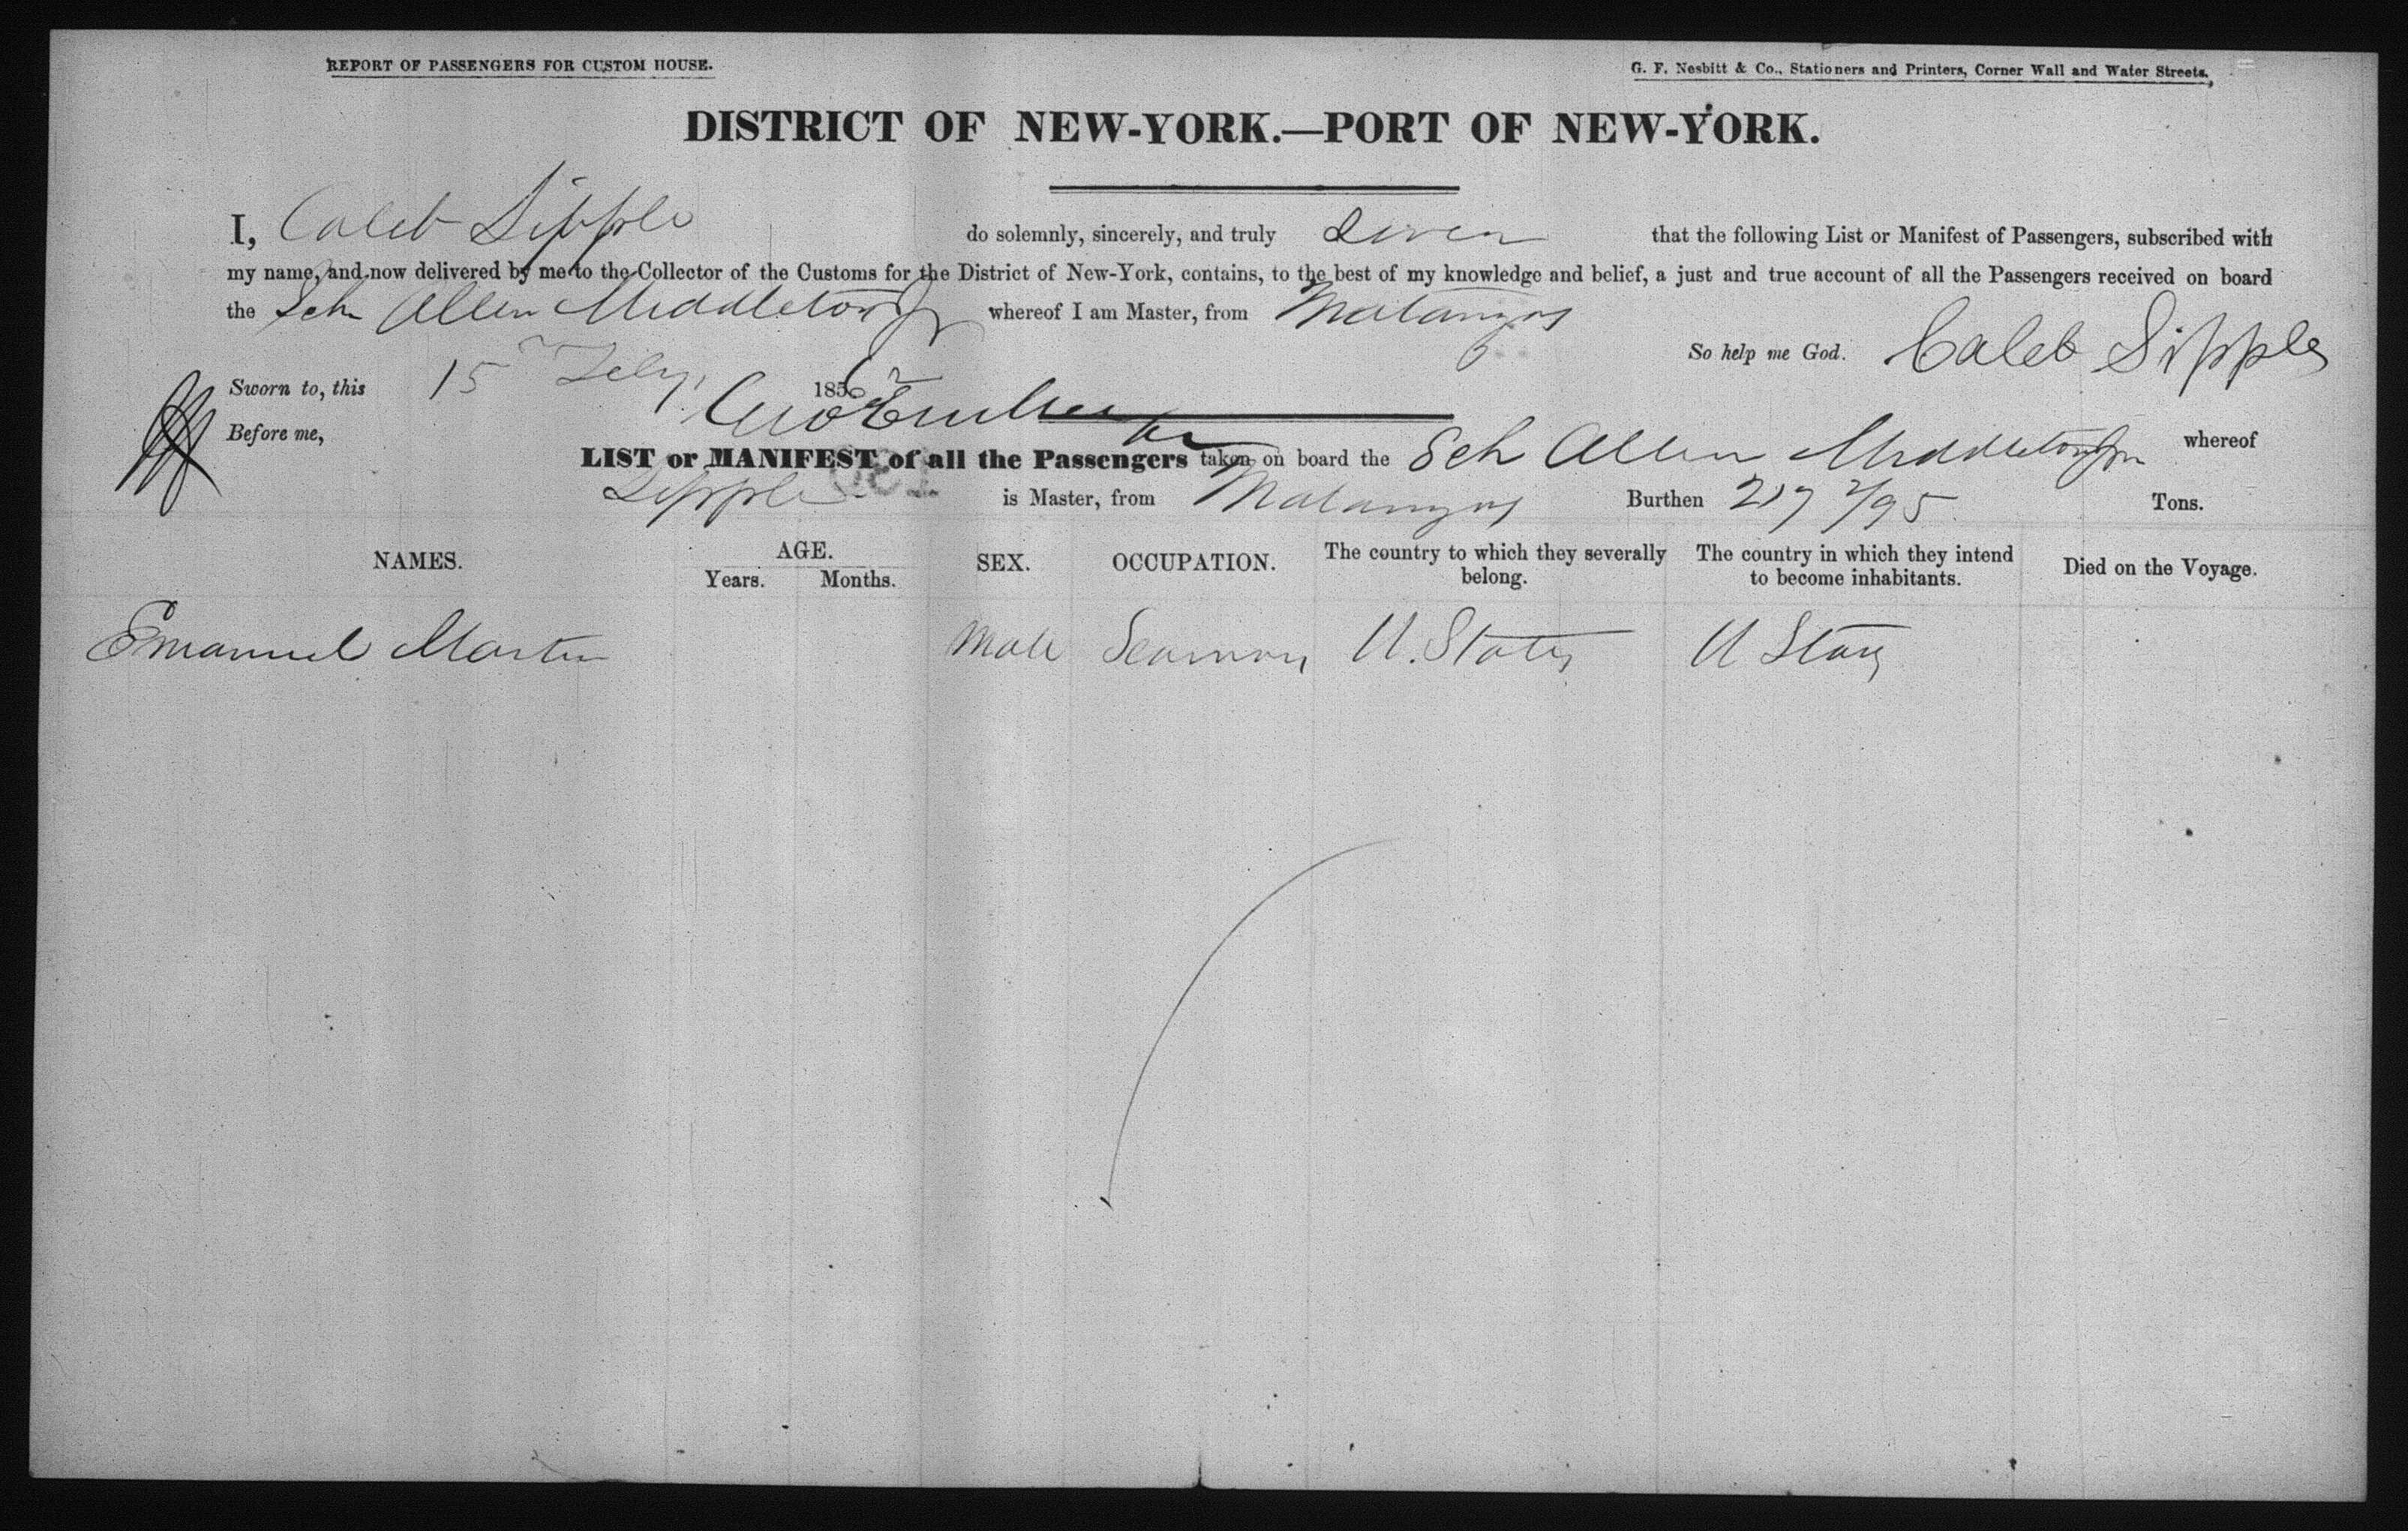 REPORT OF PASSENGERS FOR CUSTOM HOUSE.
G. F. Nesbitt & Co., Stationers and Printers, Corner Wall and Water Streets,
DISTRICT OF NEW-YORK.—PORT OF NEW-YORK.
I, Caleb Sipple do solemnly, sincerely, and truly swear that the following List or Manifest of Passengers, subscribed with
my name, and now delivered by me to the Collector of the Customs for the District of New-York, contains, to the best of my knowledge and belief, a just and true account of all the Passengers received on board
the Sch Allen Middleton Jr whereof I am Master, from Matanzas
So help me God. Caleb Sipple
Sworn to, this 15 Feby 185
Before me,
LIST or MANIFEST of all the Passengers taken on board the Sch Allen Middleton Jr whereof
Sipple is Master, from Matanzas Burthen 217 2/95 Tons.
NAMES. AGE. Years. Months. SEX. OCCUPATION. The country to which they severally belong. The country in which they intend to become inhabitants. Died on the Voyage.
Emanuel Martin Male Seaman U. States U States